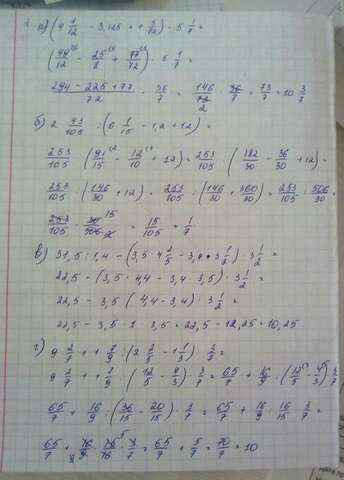 2 а) (4 1/12 - 3,125 + 1 5/72) · 5 1/7 =
(49/12 - 25/8 + 77/72) · 5 1/7 =
294 - 225 + 77 / 72 · 36/7 = 146/72 · 36/7 = 73/7 = 10 3/7
б) 2 43/105 : (6 1/15 - 1,2 + 12) =
253/105 : (91/15 - 12/10 + 12) = 253/105 : (182/30 - 36/30 + 12) =
253/105 : (146/30 + 12) = 253/105 : (146/30 + 360/30) = 253/105 : 506/30 =
253/105 · 30/506 = 15/105 = 1/7
в) 31,5 : 1,4 - (3,5 · 4 2/5 - 3,4 · 3 1/2) · 3 1/2 =
22,5 - (3,5 · 4,4 - 3,4 · 3,5) · 3 1/2 =
22,5 - 3,5 (4,4 - 3,4) · 3 1/2 =
22,5 - 3,5 · 1 · 3,5 = 22,5 - 12,25 = 10,25
г) 9 2/7 + 1 7/9 : (2 2/5 - 1 1/3) · 3/7 =
9 2/7 + 1 7/9 · (12/5 - 4/3) · 3/7 = 65/7 + 16/9 : (12/5 - 4/3) 3/7
65/7 + 16/9 : (36/15 - 20/15) · 3/7 = 65/7 + 16/9 : 16/15 · 3/7 =
65/7 + 16/9 · 15/16 · 3/7 = 65/7 + 5/7 = 70/7 = 10